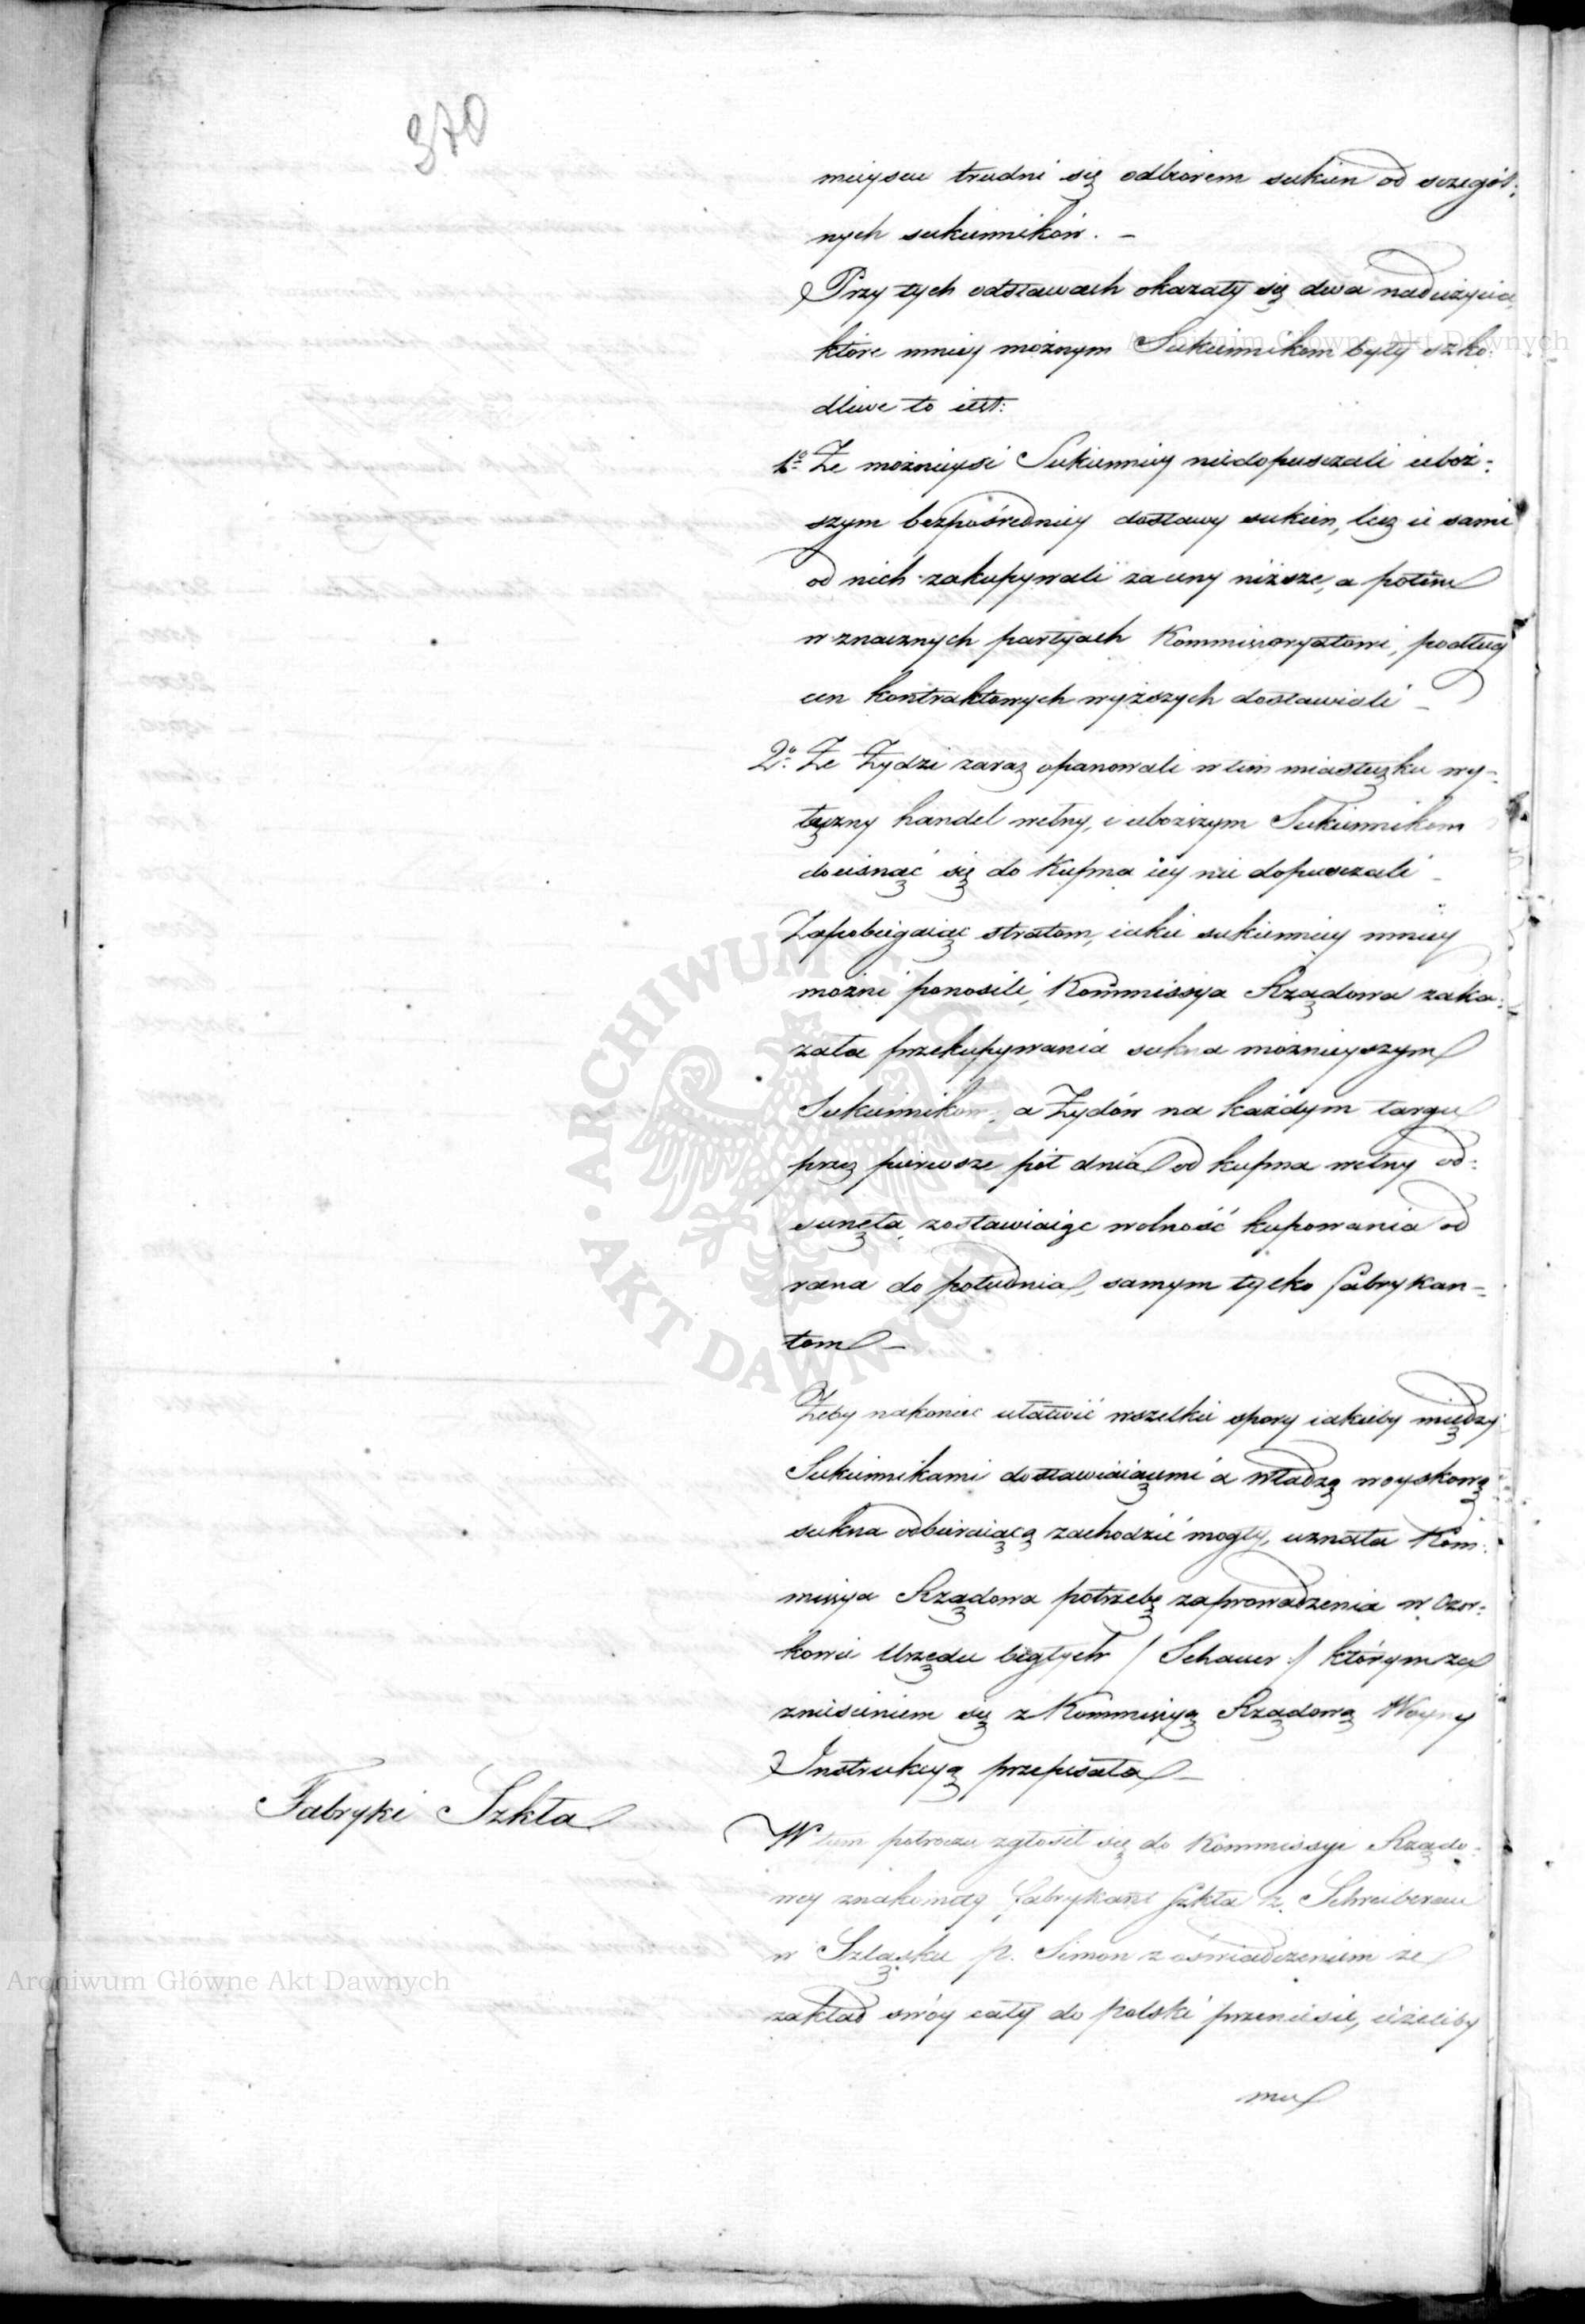 370
mieyscu trudni się odbiorem sukien od szczegól:
nych sukienników. –
Przy tych odstawach okazały się dwa nadużycia,
które mniey możnym Sukiennikom były szko:
dliwe to iest:
1º Że możnieysi Sukiennicy niedopuszczali uboż:
szym bezpośredniey dostawy sukien, lecz ie sami
od nich zakupywali za ceny niższe, a potem
w znacznych partyach Kommissoryatowi, podług
cen kontraktowych wyższych dostawiali –
2º Że Żydzi zaraz opanowali w tem miasteczku wy-
łączny handel wełny, i uboższym Sukiennikom
docisnąć się do Kupna iey nie dopuszczali –
Zapobiegaiąc stratom, iakie sukiennicy mniey
możni ponosili, Kommissya Rządowa zaka:
zała przekupywania sukna możnieyszym
Sukiennikom, a Żydów na każdym targu
przez pierwsze pół dnia od kupna wełny od:
sunęła, zostawiaiąc wolność kupowania od
rana do południa, samym tylko fabrykan-
tom –
Żeby nakoniec ułatwić wszelkie spory iakieby między
Sukiennikami dostawiaiącemi a władzą woyskową
sukna odbieraiącą zachodzić mogły, uznała Kom:
missya Rządowa potrzebę zaprowadzenia w Ozor:
kowie Urzędu biegłych / Schauer / którym za
zniesieniem się z Kommissyą Rządową Woyny
Instrukcyą przepisała –
Fabryki Szkła
W tem półroczu zgłosił się do Kommissyi Rządo:
wey znakomity fabrykant szkła z Schreiberau
w Szląsku p. Simon z oświadczeniem że
zakład swóy cały do Polski przeniesie, ieżeliby
mu
Archiwum Główne Akt Dawnych
Archiwum Główne Akt Dawnych
ARCHIWUM GŁÓWNE AKT DAWNYCH